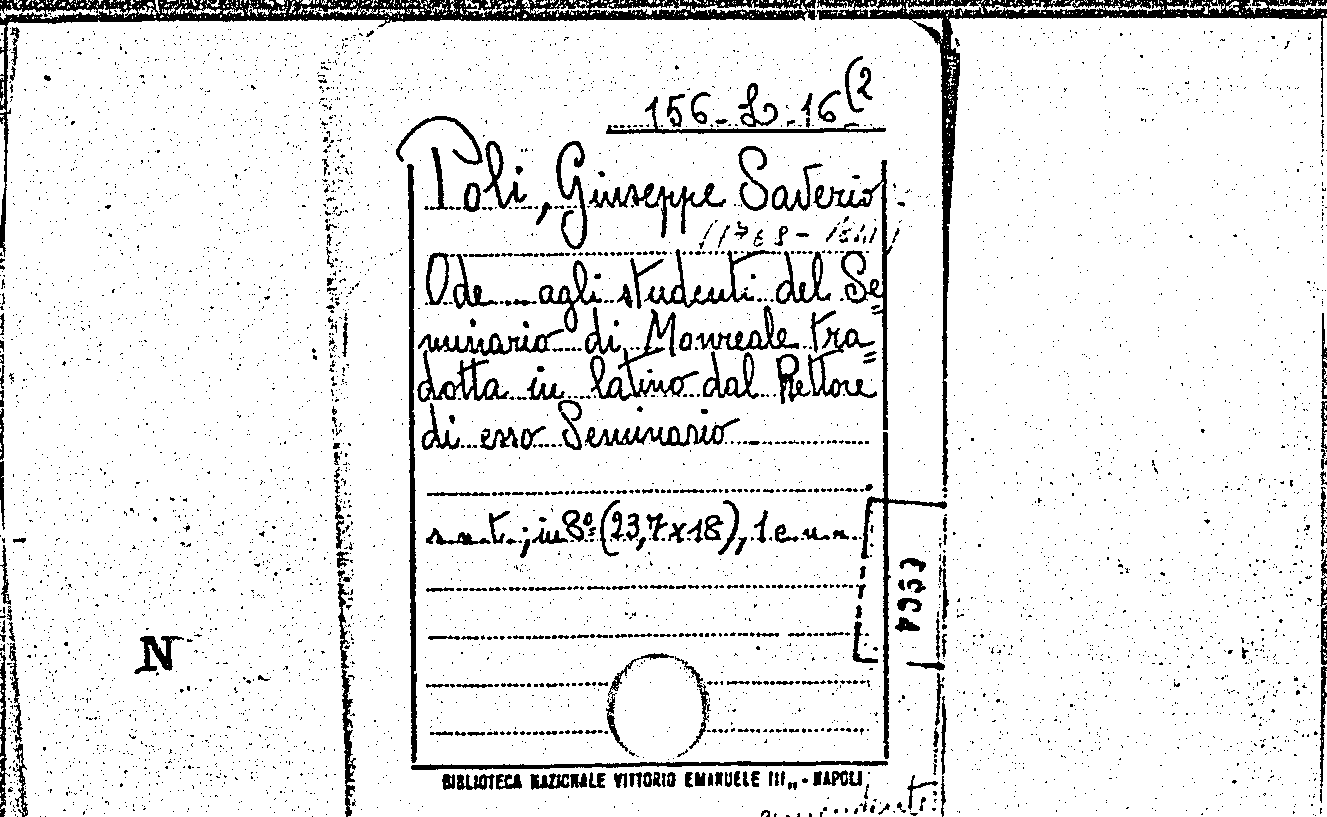 156-L-16(2
Poli, Giuseppe Saverio.
Ode agli studenti del Se=
minario di Monreale tra=
dotta in latino dal Rettore
di esso Seminario
s.n.t.; in 8º (23,7x18), 1 c. n.n.
N
BIBLIOTECA NAZIONALE VITTORIO EMANUELE III„ - NAPOLI